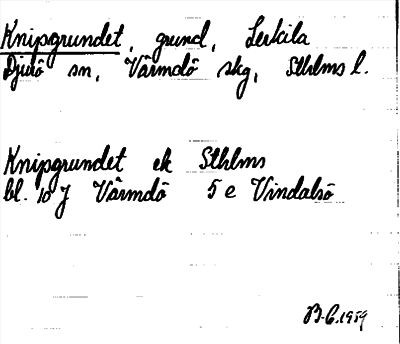 Knipgrundet, grund, Lerkila
Djurö sn, Värmdö skg, Sthlms l.
Knipgrundet ek Sthlms
bl. 10 J Värmdö 5 e Vindalsö
B.C. 1959